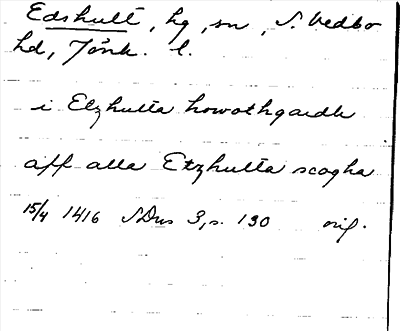 Edshult, hg, sn, S. Vedbo
hd, Jönk. l.
i Etzhulta howothgardh
aff alla Etzhulta scogha
15/4 1416 SDns 3, s. 130 orig.